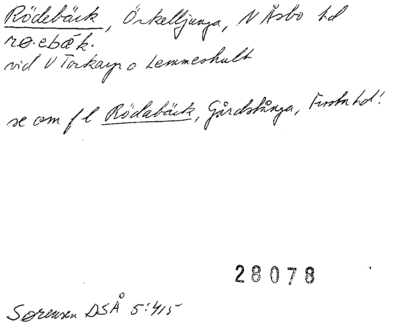 Rödebäck, Örkelljunga, N Åsbo hd
rø·ebäk.
vid V Torkarp o Lemmeshult
se om f l Rödabäck, Gårdstånga, Frosta hd!
28078
Sørensen DSÅ 5:415